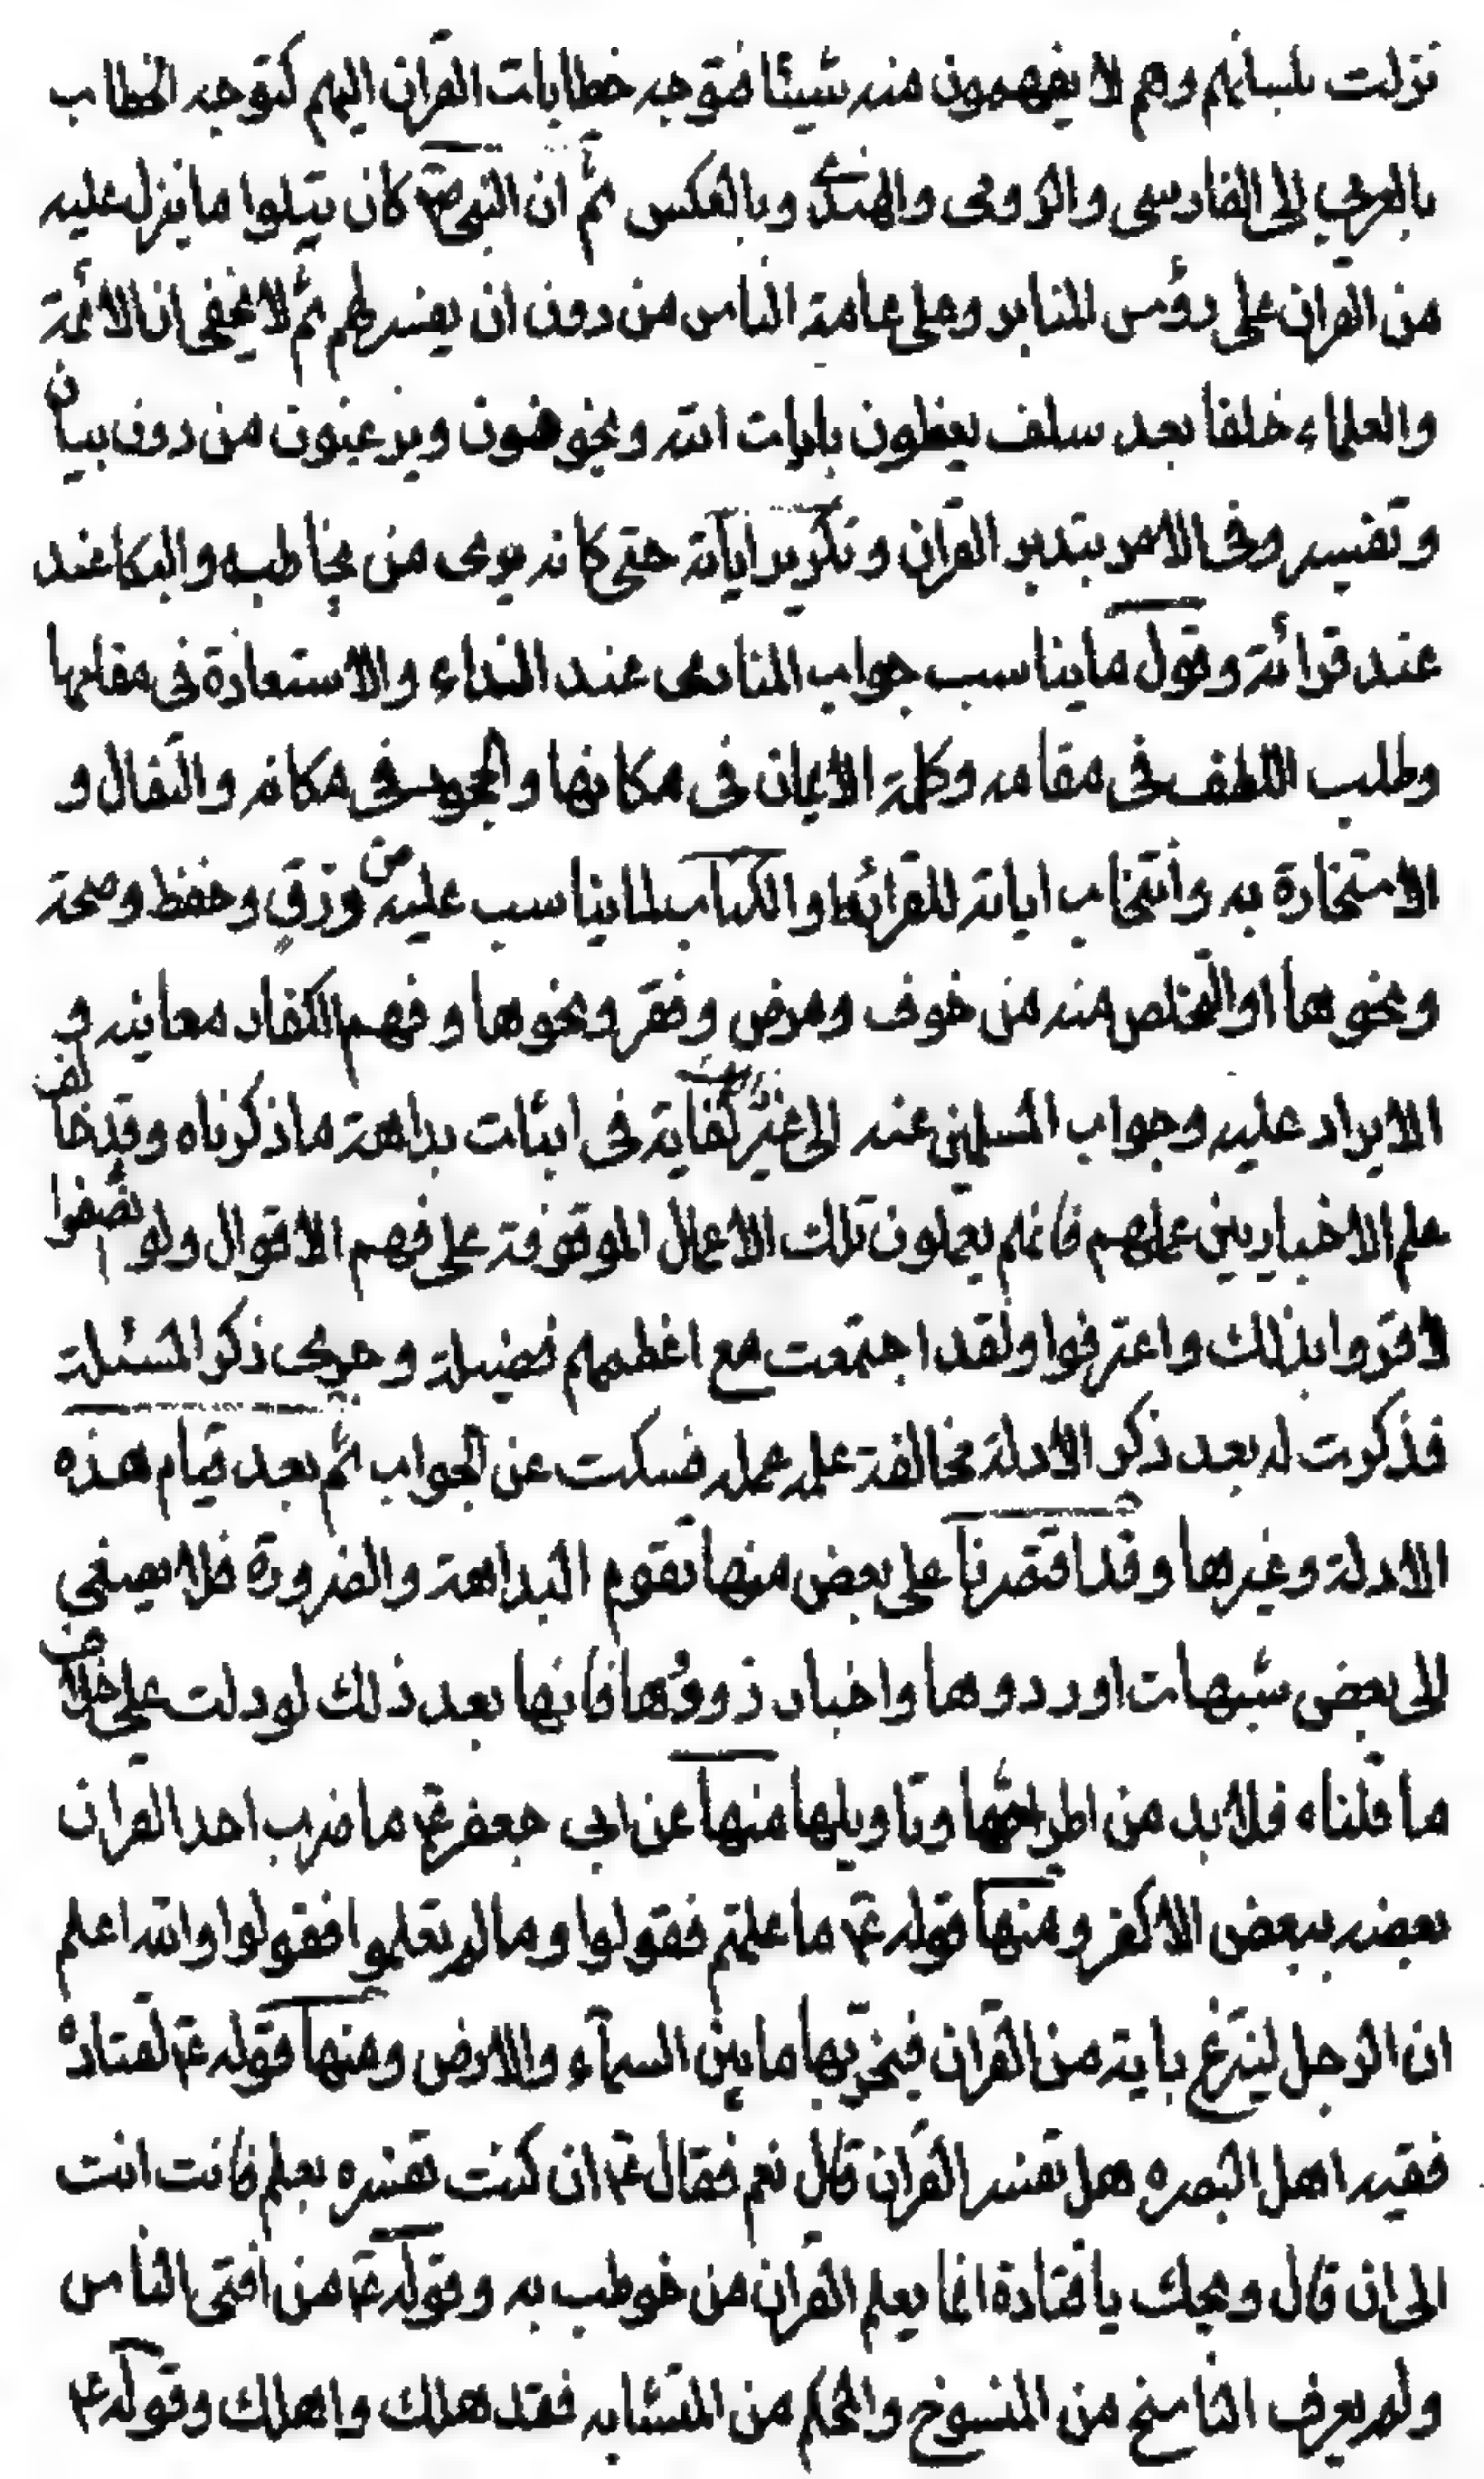 نزلت بلسانهم وهم لا يفهمون منه شيئا فتوجه خطابات القران اليهم كتوجه الخطاب
بالعربي الى الفارسي والرومى والهندى وبالعكس ثم ان النبى ص كان يتلوا ما ينزل عليه
من القران على رؤس المنابر وعلى عامة الناس من دون ان يفسر لهم ثم لا يخفى ان الائمة
والعلماء خلفا بعد سلف يعظون بايات الله ويخوفون ويرغبون من دون بيان
وتفسير وفى الامر بتدبر القران وتكرير اياته حتى كانه يرى من يخاطبه والبكاء عند
عند قرائته وقول ما يناسب جواب المنادى عند النداء والاستعاذة فى مقامها
وطلب اللطف فى مقامه وكلمة الايمان فى مكانها والجحود فى مكانه والتفال و
الاستخارة به وانتخاب اياته للقرائة والكتاب لما يناسب عليه من رزق وحفظ وصحة
ونحوها او التخلص منه من خوف ومرض وفقر ونحوها وفهم الكفار معانيه و
الايراد عليه وجواب المسلمين عنه الى غير كفاية فى اثبات بداهة ما ذكرناه وقد خالف
علم الاخباريين عملهم فانهم يعملون تلك الاعمال الموقوفة على فهم الاقوال ولو انصفوا
لاقروا بذلك واعترفوا ولقد اجتمعت مع اعظمهم فضيلة وجرى ذكر المسئلة
فذكرت له بعد ذكر الادلة مخالفة علمه عمله فسكت عن الجواب ثم بعد قيام هذه
الادلة وغيرها وقد اقتصرنا على بعض منها تقوم البداهة والضرورة فلا يصغى
الى بعض شبهات اوردوها واخبار رووها فانها بعد ذلك لو دلت على خلاف
ما قلناه فلا بد من اطراحها وتاويلها منها عن ابى جعفر ع ما ضرب احد القران
بعضه ببعض الا كفر ومنها قوله ع ما علمتم فقولوا وما لم تعلموا فقولوا والله اعلم
ان الرجل لينتزع باية من القران فيخر بها ما بين السماء والارض ومنها قوله ع لقتادة
فقيه اهل البصره هل تفسر القران قال نعم فقال ع ان كنت تفسره بعلم فانت انت
الى ان قال ويحك يا قتادة انما يعلم القران من خوطب به وقوله ع من افتى الناس
ولم يعرف الناسخ من المنسوخ والمحكم من المتشابه فقد هلك واهلك وقوله ع